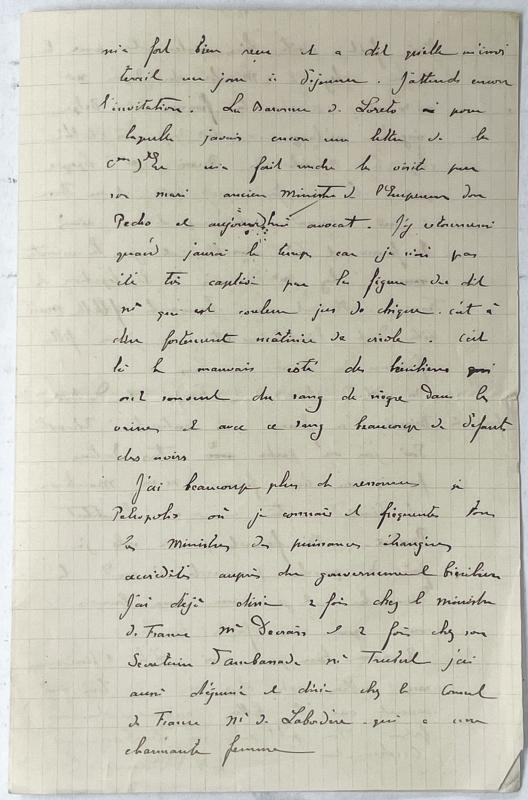 m'a fort bien reçu et a dit qu'elle m'invi
terait un jour à déjeuner. J'attends encore
l'invitation. La Baronne de Loreto pour
laquelle j'avais encore une lettre de la
Csse d'Eu m'a fait rendre la visite par
son mari ancien Ministre de l'Empereur don
Pedro et aujourd'hui avocat. J'y retournerai
quand j'aurai le temps car je n'ai pas
été très captivé par la figure du dit
Mr qui est couleur jus de chique. c'est à
dire fortement mâtinée de créole. C'est
là le mauvais côté des brésiliens qui
ont souvent du sang de nègre dans les
veines et avec ce sang beaucoup de défauts
des noirs.
J'ai beaucoup plus de ressources à
Petropolis où je connais et fréquente tous
les Ministres des puissances étrangères
accrédités auprès du gouvernement brésilien
J'ai déjà dîné 2 fois chez le ministre
de France Mr Decrais et 2 fois chez son
Secrétaire d'ambassade Mr j'ai
aussi déjeuné et dîné chez le Consul
de France Mr de Labordère qui a une
charmante femme